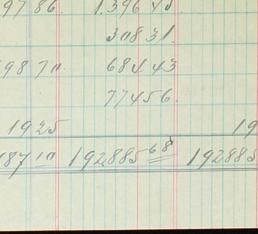 9786. 139645
30831.
9870. 68443
77456.
1925 19
18710 19288568 192885